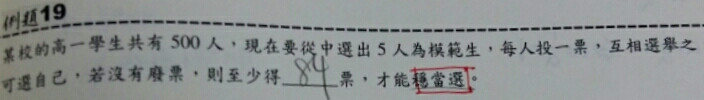 例題19
某校的高一學生共有500人，現在要從中選出5人為模範生，每人投一票，互相選舉之
可選自己，若沒有廢票，則至少得84票，才能穩當選。